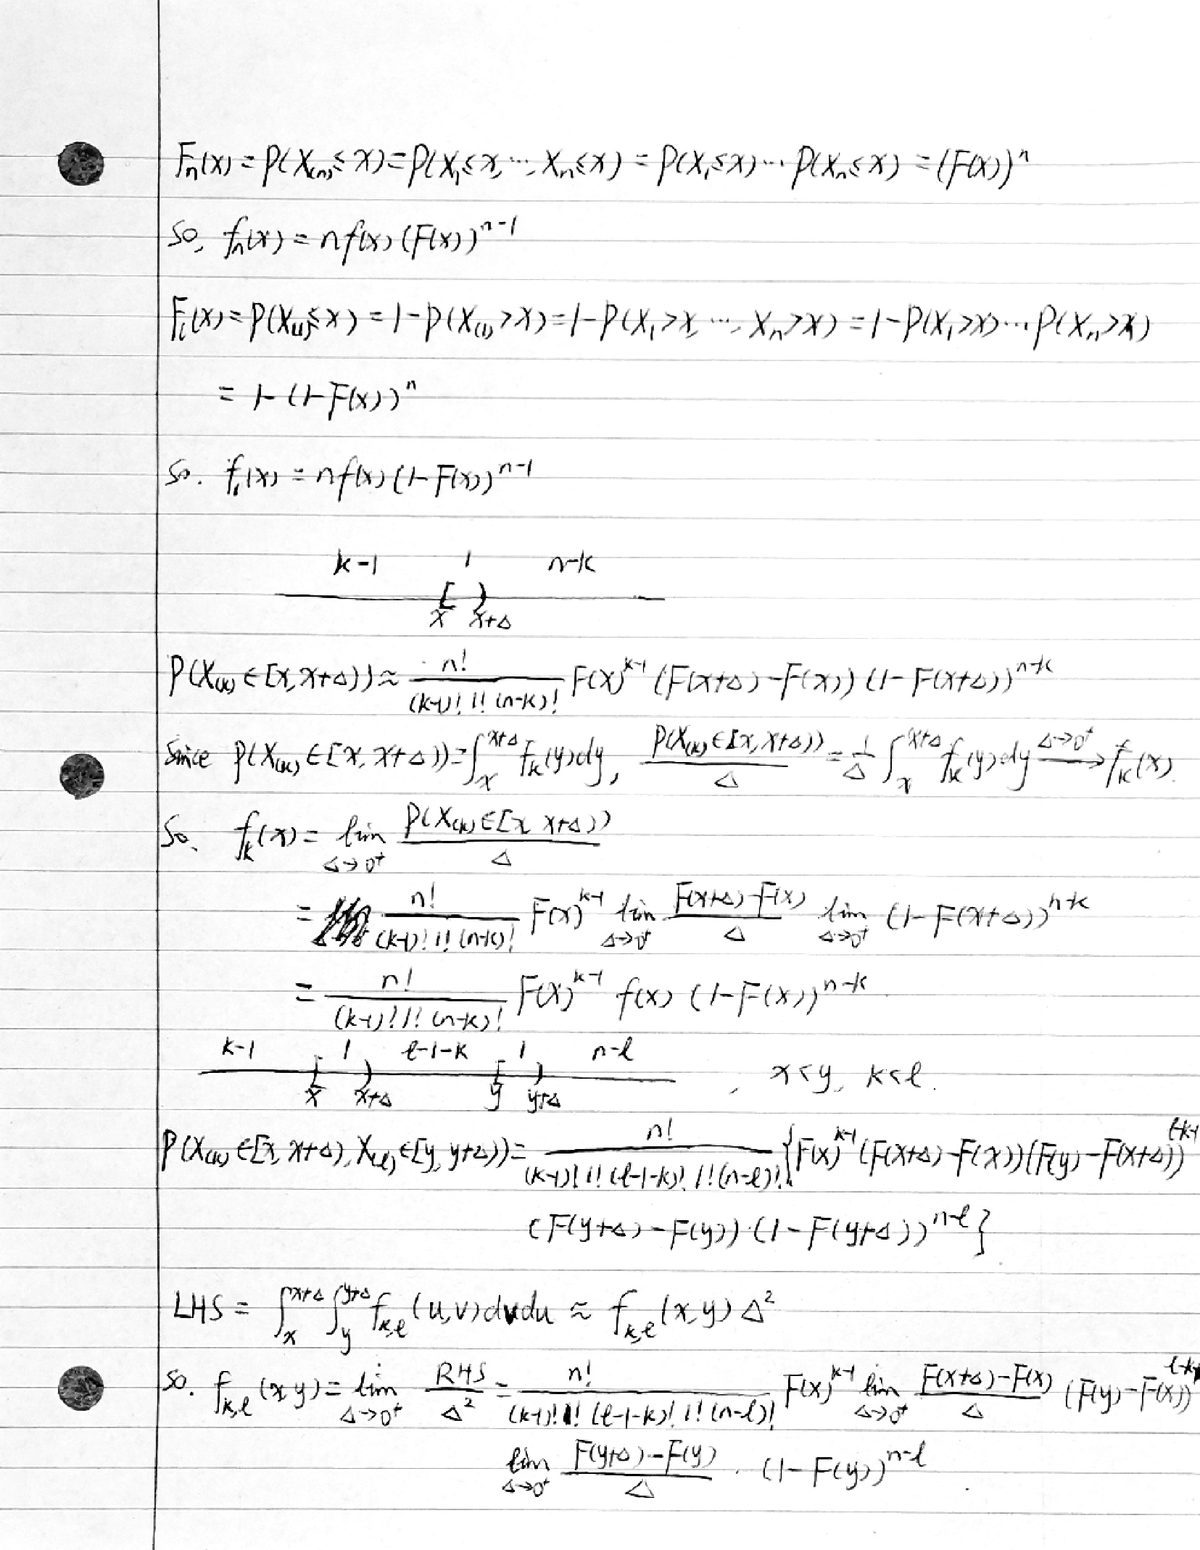 Fₙ(x) = P(X₍ₙ₎ ≤ x) = P(X₁ ≤ x, ⋯, Xₙ ≤ x) = P(X₁ ≤ x) ⋯ P(Xₙ ≤ x) = (F(x))ⁿ
So, fₙ(x) = n f(x) (F(x))ⁿ⁻¹
F₁(x) = P(X₍₁₎ ≤ x) = 1 − P(X₍₁₎ > x) = 1 − P(X₁ > x, ⋯, Xₙ > x) = 1 − P(X₁ > x) ⋯ P(Xₙ > x)
= 1 − (1 − F(x))ⁿ
So. f₁(x) = n f(x) (1 − F(x))ⁿ⁻¹
k−1 1 n−k
[ )
x x+Δ
P(X₍ₖ₎ ∈ [x, x+Δ)) ≈ n! / ((k−1)! 1! (n−k)!) F(x)^{k−1} (F(x+Δ) − F(x)) (1 − F(x+Δ))^{n−k}
Since P(X₍ₖ₎ ∈ [x, x+Δ)) = ∫_x^{x+Δ} fₖ(y) dy, P(X₍ₖ₎ ∈ [x, x+Δ)) / Δ = 1/Δ ∫_x^{x+Δ} fₖ(y) dy →^{Δ→0⁺} fₖ(x).
So. fₖ(x) = lim_{Δ→0⁺} P(X₍ₖ₎ ∈ [x, x+Δ)) / Δ
= n! / ((k−1)! 1! (n−k)!) F(x)^{k−1} lim_{Δ→0⁺} (F(x+Δ) − F(x)) / Δ lim_{Δ→0⁺} (1 − F(x+Δ))^{n−k}
= n! / ((k−1)! 1! (n−k)!) F(x)^{k−1} f(x) (1 − F(x))^{n−k}
k−1 1 ℓ−1−k 1 n−ℓ
[ ) [ ) , x < y, k < ℓ.
x x+Δ y y+Δ
P(X₍ₖ₎ ∈ [x, x+Δ), X₍ℓ₎ ∈ [y, y+Δ)) = n! / ((k−1)! 1! (ℓ−1−k)! 1! (n−ℓ)!) {F(x)^{k−1} (F(x+Δ) − F(x)) (F(y) − F(x+Δ))^{ℓ−k−1}
(F(y+Δ) − F(y)) (1 − F(y+Δ))^{n−ℓ}}
LHS = ∫_x^{x+Δ} ∫_y^{y+Δ} f_{k,ℓ}(u,v) dv du ≈ f_{k,ℓ}(x,y) Δ²
So. f_{k,ℓ}(x,y) = lim_{Δ→0⁺} RHS / Δ² = n! / ((k−1)! 1! (ℓ−1−k)! 1! (n−ℓ)!) F(x)^{k−1} lim_{Δ→0⁺} (F(x+Δ) − F(x)) / Δ (F(y) − F(x))^{ℓ−k
lim_{Δ→0⁺} (F(y+Δ) − F(y)) / Δ · (1 − F(y))^{n−ℓ}